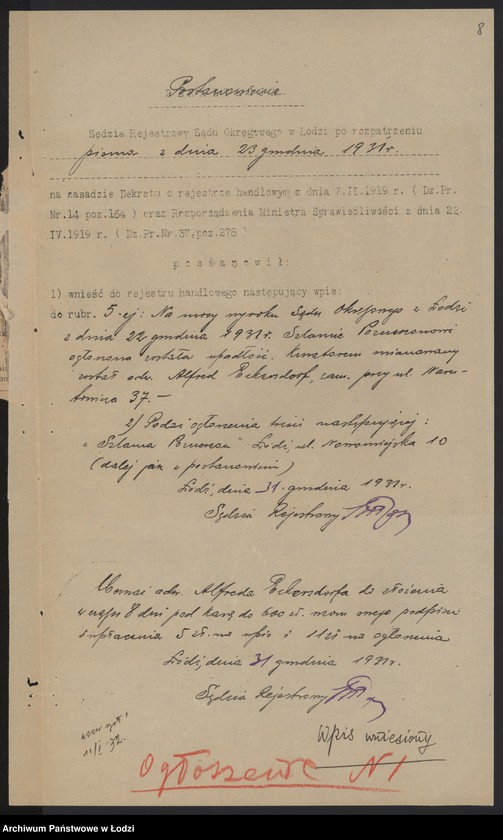 8
Postanowienie.
Sędzia Rejestrowy Sądu Okręgowego w Łodzi po rozpatrzeniu
pisma z dnia 23 grudnia 1931 r.
na zasadzie Dekretu o rejestrze handlowym z dnia 7.II.1919 r. ( Dz.Pr.
Nr.14 poz.164 ) oraz Rozporządzenia Ministra Sprawiedliwości z dnia 22
IV.1919 r. ( Dz.Pr.Nr.37,poz.278 )
p o s t a n o w i ł :
1) wnieść do rejestru handlowego następujący wpis:
do rubr. 5-ej: Na mocy wyroku Sądu Okręgowego w Łodzi
z dnia 22 grudnia 1931 r. Szlamie
ogłoszona została upadłość. Kuratorem mianowany
został adw. Alfred Eckersdorf, zam. przy ul. Naru-
towicza 37.—
2) Podać ogłoszenia treści następującej:
„Szlama Łódź, ul. Nowomiejska 10
(dalej jak w postanowieniu)
Łódź, dnia 31 grudnia 1931 r.
Sędzia Rejestrowy
Wezwać adw. Alfreda Eckersdorfa do złożenia
w ciągu 8 dni pod karą do 600 zł. wzoru swego podpisu
i wpłacenia 5 zł. na wpis i 11 zł na ogłoszenia
Łódź, dnia 31 grudnia 1931 r.
Sędzia Rejestrowy
11/I 32.
Wpis wniesiony
Ogłoszenie N 1
Archiwum Państwowe w Łodzi